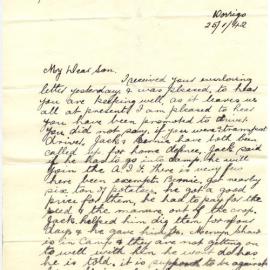 Dorrigo
25/1/42
My Dear Son.
I received your welcome
letter yesterday & was pleased to hear
you are keeping well, as it leaves us
all at present. I am pleased to hear
you have been promoted to driver
you did not say if you were transport
driver, Jack & Bernie have both been
called up for home defence, Jack said
if he has to go into camp he will
join the A.I.F. there is very few
been exempt. Bernie got nearly
six ton of potatoes, he got a good
price for them, he had to pay for the
seed & the manure out of the crop.
Jack helped him dig them for a few
days & he gave him
is in Camp & they are not getting on
to well with him he wont do has
he is told, it is